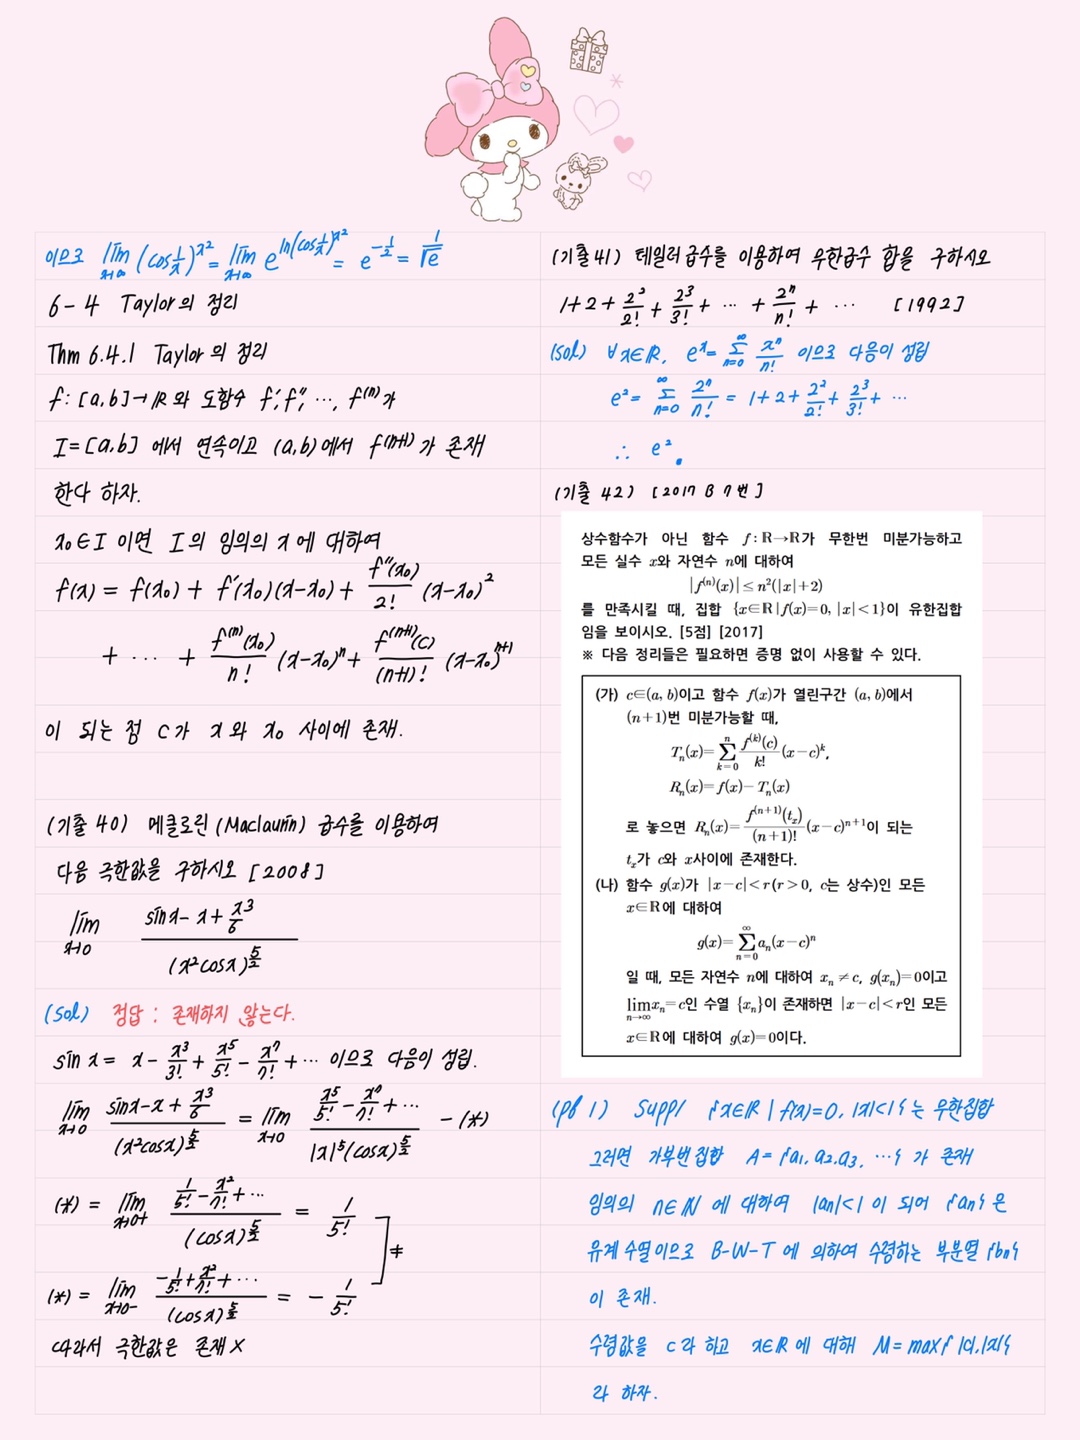 이므로 lim x→∞ (cos 1/x)^x² = lim x→∞ e^ln(cos 1/x)^x² = e^-1/2 = 1/√e
6-4 Taylor의 정리
Thm 6.4.1 Taylor의 정리
f: [a,b]→ℝ와 도함수 f′, f″, ⋯, f⁽ⁿ⁾가
I=[a,b] 에서 연속이고 (a,b)에서 f⁽ⁿ⁺¹⁾가 존재
한다 하자.
x₀∈I 이면 I의 임의의 x에 대하여
f(x) = f(x₀) + f′(x₀)(x-x₀) + f″(x₀)/2! (x-x₀)²
+ ⋯ + f⁽ⁿ⁾(x₀)/n! (x-x₀)ⁿ + f⁽ⁿ⁺¹⁾(c)/(n+1)! (x-x₀)ⁿ⁺¹
이 되는 점 c가 x와 x₀ 사이에 존재.
(기출 40) 메클로린(Maclaurin) 급수를 이용하여
다음 극한값을 구하시오 [2008]
lim x→0 (sinx - x + x³/6) / (x²cosx)^5/2
(sol) 정답 : 존재하지 않는다.
sin x = x - x³/3! + x⁵/5! - x⁷/7! + ⋯ 이므로 다음이 성립.
lim x→0 (sinx-x+x³/6) / (x²cosx)^5/2 = lim x→0 (x⁵/5! - x⁷/7! + ⋯) / |x|⁵(cosx)^5/2 - (*)
(*) = lim x→0+ (1/5! - x²/7! + ⋯) / (cosx)^5/2 = 1/5!
≠
(*) = lim x→0- (-1/5! + x²/7! + ⋯) / (cosx)^5/2 = - 1/5!
따라서 극한값은 존재 X
(기출41) 테일러급수를 이용하여 무한급수 합을 구하시오
1+2+2²/2!+2³/3!+ ⋯ + 2ⁿ/n! + ⋯ [1992]
(sol) ∀x∈ℝ, eˣ= ∑ n=0 ∞ xⁿ/n! 이므로 다음이 성립
e²= ∑ n=0 ∞ 2ⁿ/n! = 1+2+2²/2!+2³/3!+ ⋯
∴ e².
(기출 42) [2017 B 7번]
상수함수가 아닌 함수 f:R→R가 무한번 미분가능하고
모든 실수 x와 자연수 n에 대하여
|f⁽ⁿ⁾(x)| ≤ n²(|x|+2)
를 만족시킬 때, 집합 {x∈R|f(x)=0, |x|<1}이 유한집합
임을 보이시오. [5점] [2017]
※ 다음 정리들은 필요하면 증명 없이 사용할 수 있다.
(가) c∈(a, b)이고 함수 f(x)가 열린구간 (a, b)에서
(n+1)번 미분가능할 때,
Tₙ(x)= ∑ k=0 n f⁽ᵏ⁾(c)/k! (x-c)ᵏ,
Rₙ(x)=f(x)-Tₙ(x)
로 놓으면 Rₙ(x)= f⁽ⁿ⁺¹⁾(tₓ)/(n+1)! (x-c)ⁿ⁺¹이 되는
tₓ가 c와 x사이에 존재한다.
(나) 함수 g(x)가 |x-c|<r(r>0, c는 상수)인 모든
x∈R에 대하여
g(x)= ∑ n=0 ∞ aₙ(x-c)ⁿ
일 때, 모든 자연수 n에 대하여 xₙ≠c, g(xₙ)=0이고
lim n→∞ xₙ=c인 수열 {xₙ}이 존재하면 |x-c|<r인 모든
x∈R에 대하여 g(x)=0이다.
(pf 1) Supp/ {x∈ℝ | f(x)=0, |x|<1}는 무한집합
그러면 가부번집합 A={a₁, a₂, a₃, ⋯} 가 존재
임의의 n∈ℕ 에 대하여 |aₙ|<1 이 되어 {aₙ}은
유계수열이므로 B-W-T 에 의하여 수렴하는 부분열 {bₙ}
이 존재.
수렴값을 c라 하고 x∈ℝ에 대해 M=max{ |c|, |x|}
라 하자.